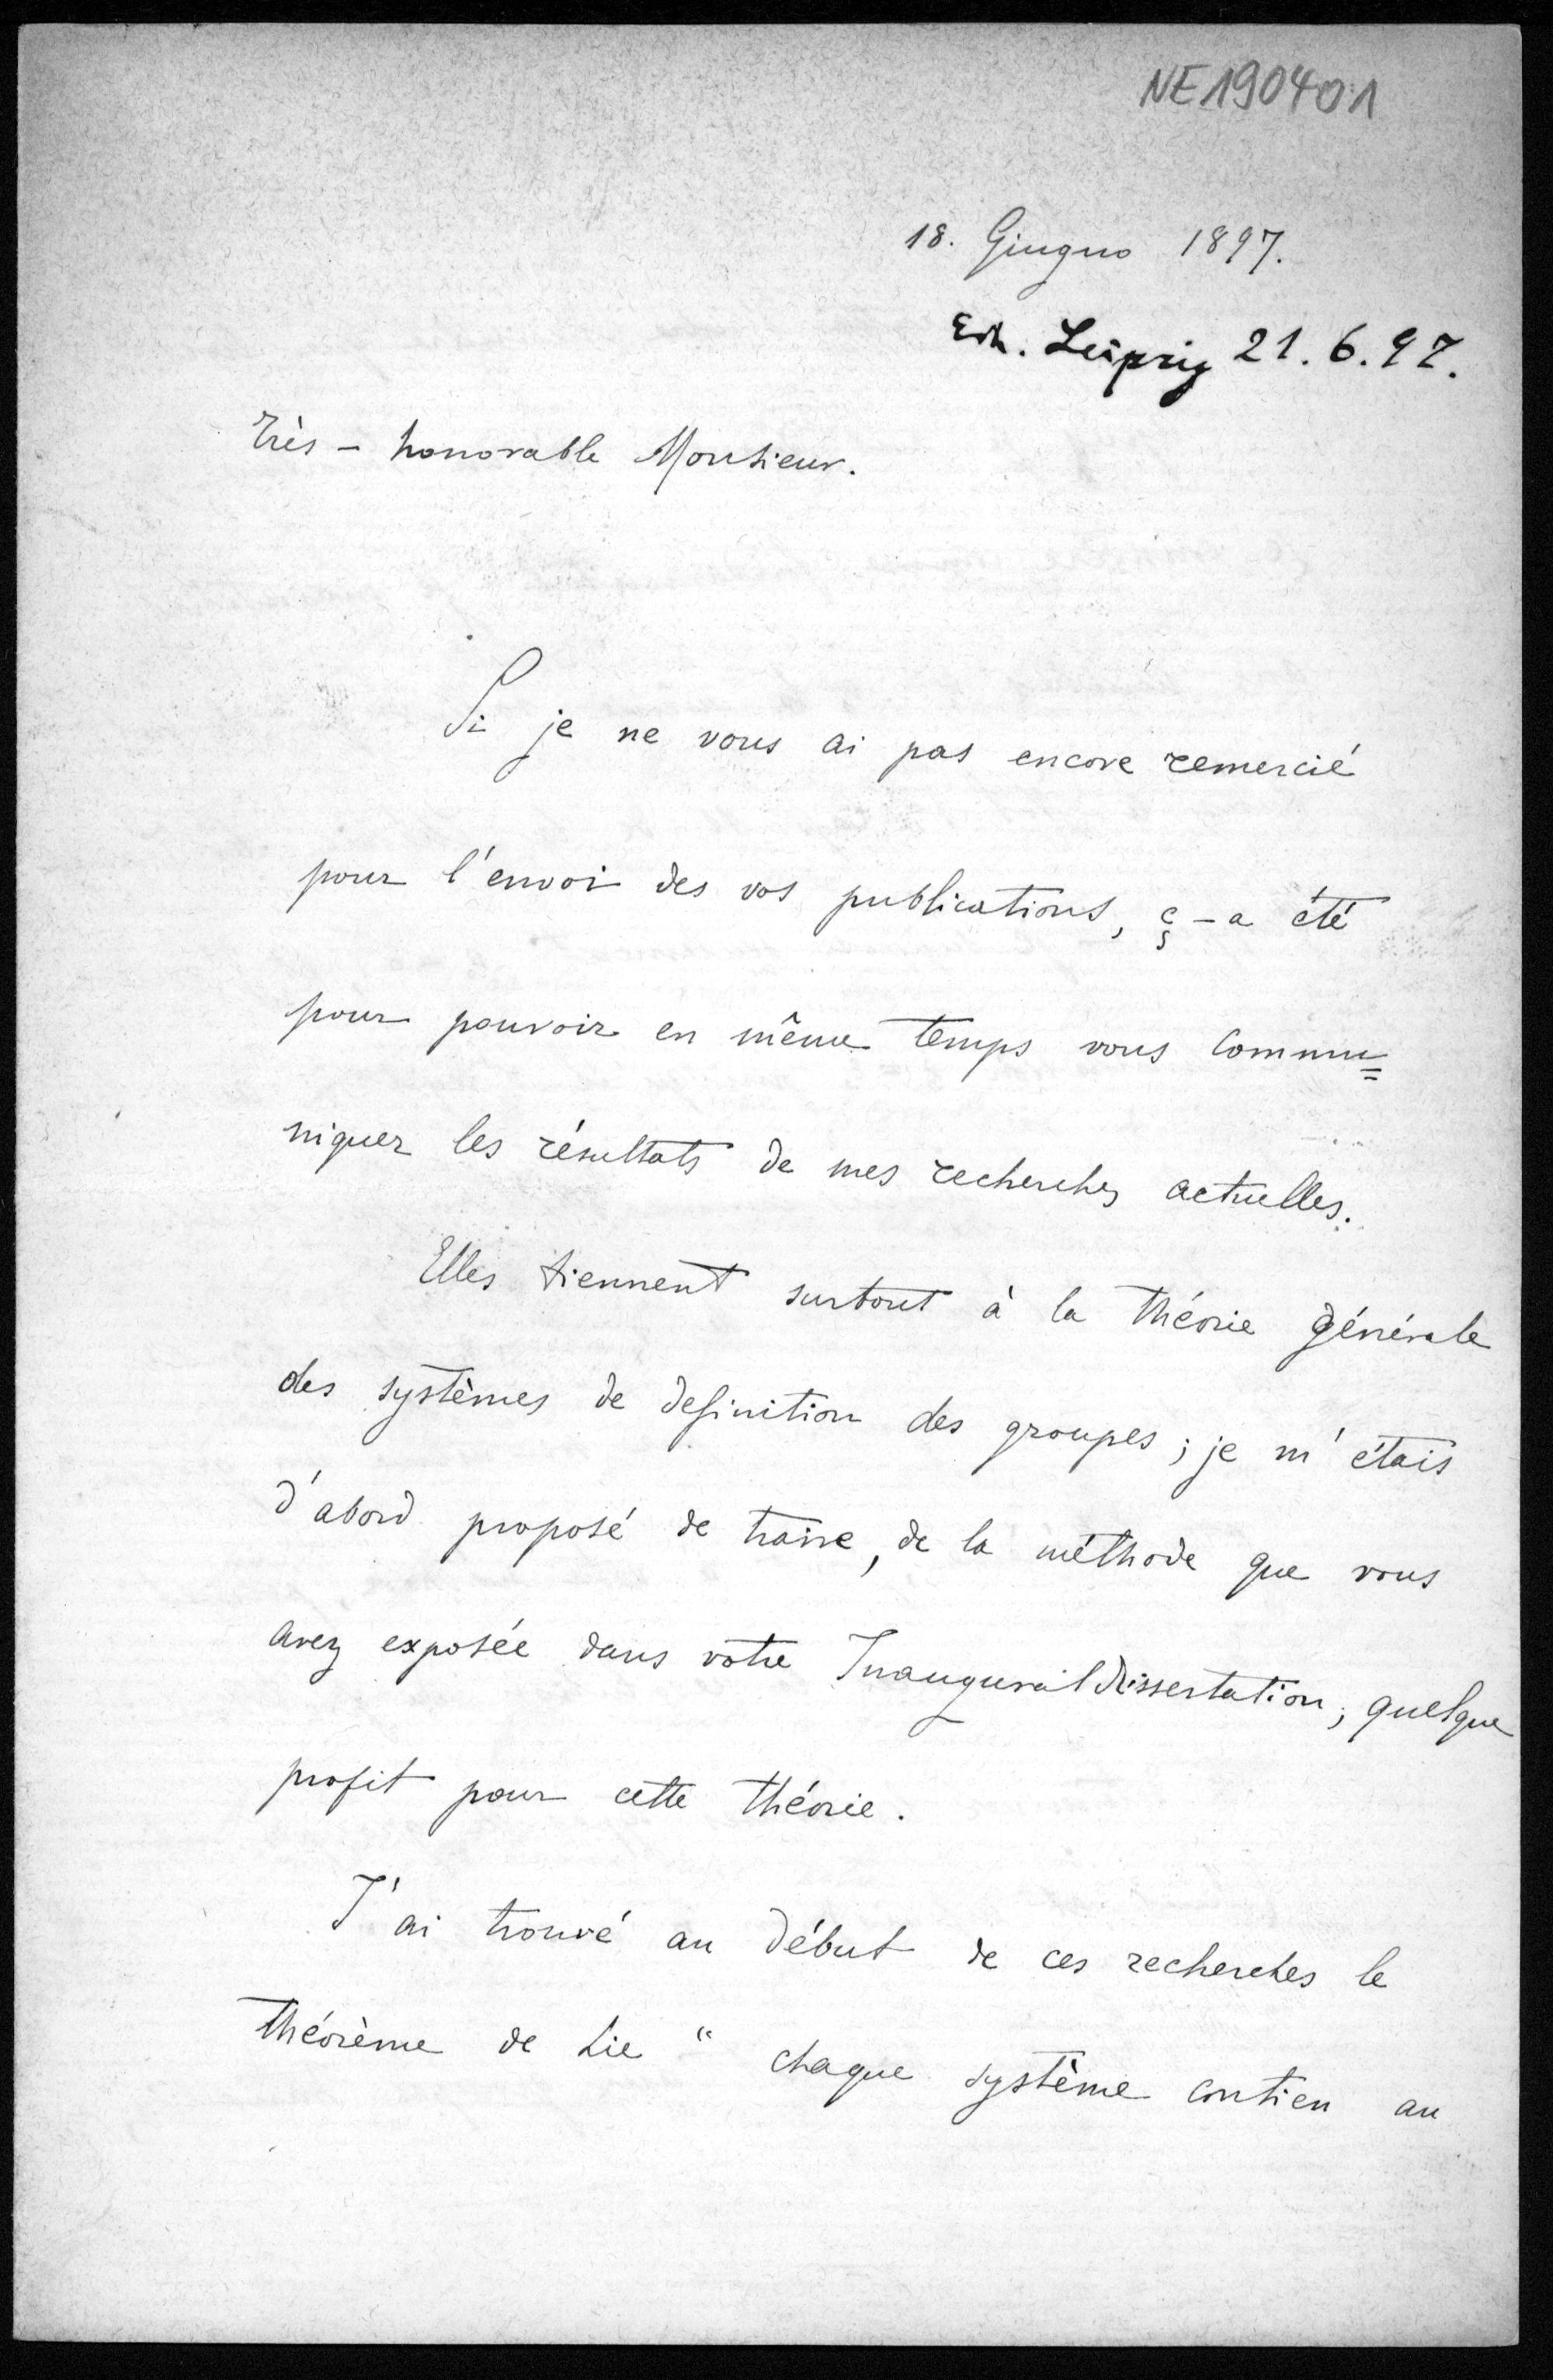 NE190401
18. Giugno 1897.
Erh. Leipzig 21.6.97.
Très-honorable Monsieur.
Si je ne vous ai pas encore remercié
pour l'envoi des vos publications, ç-a été
pour pouvoir en même temps vous commu=
niquer les résultats de mes recherches actuelles.
Elles tiennent surtout à la théorie générale
des systèmes de definition des groupes; je m'étais
d'abord proposé de traire, de la méthode que vous
avez exposée dans votre Inauguraldissertation, quelque
profit pour cette théorie.
J'ai trouvé au début de ces recherches le
théorème de Lie " chaque système contien au